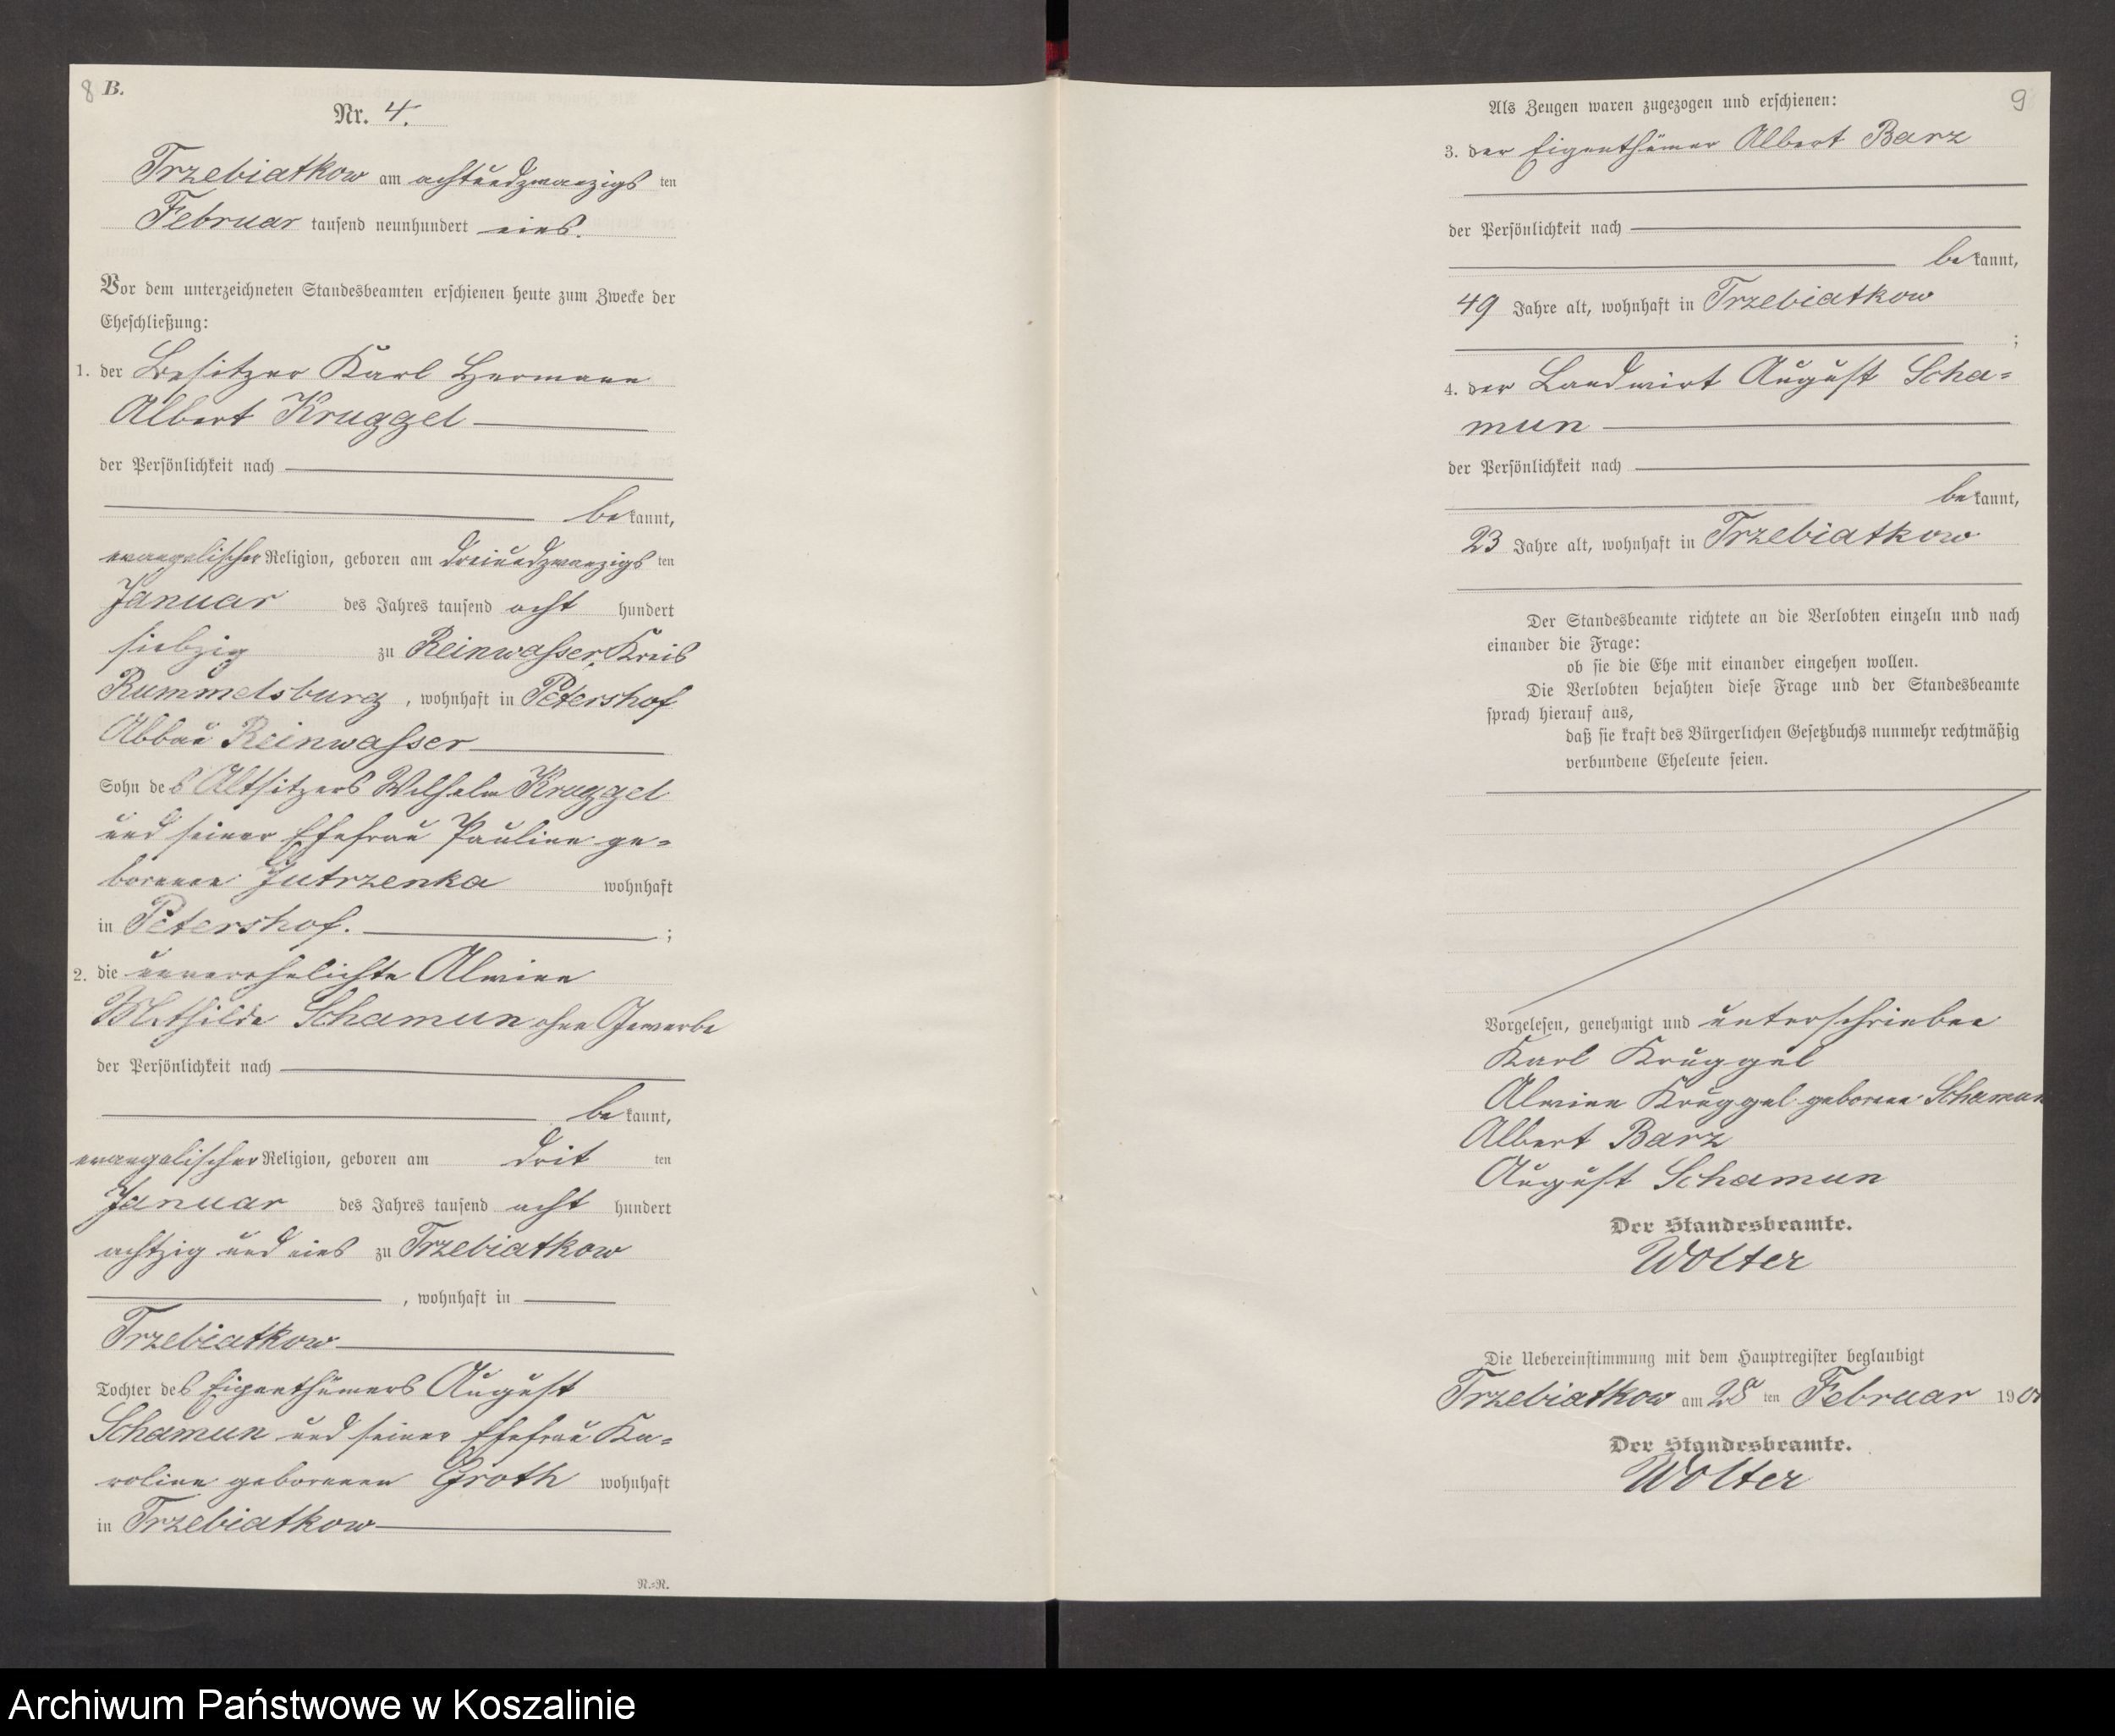 8 B.
Nr. 4.
Trzebiatkow am achtundzwanzigs ten
Februar tausend neunhundert eins.
Vor dem unterzeichneten Standesbeamten erschienen heute zum Zwecke der
Eheschließung:
1. der Besitzer Karl Hermann
Albert Kruggel
der Persönlichkeit nach
be kannt,
evangelischer Religion, geboren am dreiundzwanzigs ten
Januar des Jahres tausend acht hundert
siebzig zu Reinwasser, Kreis
Rummelsburg, wohnhaft in Petershof
Abbau Reinwasser
Sohn des Altsitzers Wilhelm Kruggel
und seiner Ehefrau Pauline ge=
borenen Jutrzenka wohnhaft
in Petershof. ;
2. die unverehelichte Alwine
Mathilde Schamun ohne Gewerbe
der Persönlichkeit nach
be kannt,
evangelischer Religion, geboren am drit ten
Januar des Jahres tausend acht hundert
achtzig und eins zu Trzebiatkow
, wohnhaft in
Trzebiatkow
Tochter des Eigenthümers August
Schamun und seiner Ehefrau Ka=
roline geborenen Groth wohnhaft
in Trzebiatkow
N.=N.
9
Als Zeugen waren zugezogen und erschienen:
3. der Eigenthümer Albert Barz
der Persönlichkeit nach
be kannt,
49 Jahre alt, wohnhaft in Trzebiatkow
;
4. der Landwirt August Scha=
mun
der Persönlichkeit nach
be kannt,
23 Jahre alt, wohnhaft in Trzebiatkow
Der Standesbeamte richtete an die Verlobten einzeln und nach
einander die Frage:
ob sie die Ehe mit einander eingehen wollen.
Die Verlobten bejahten diese Frage und der Standesbeamte
sprach hierauf aus,
daß sie kraft des Bürgerlichen Gesetzbuchs nunmehr rechtmäßig
verbundene Eheleute seien.
Vorgelesen, genehmigt und unterschrieben
Karl Kruggel
Alwine Kruggel geborene Schamun
Albert Barz
August Schamun
Der Standesbeamte.
Wolter
Die Uebereinstimmung mit dem Hauptregister beglaubigt
Trzebiatkow am 28 ten Februar 1901
Der Standesbeamte.
Wolter
Archiwum Państwowe w Koszalinie